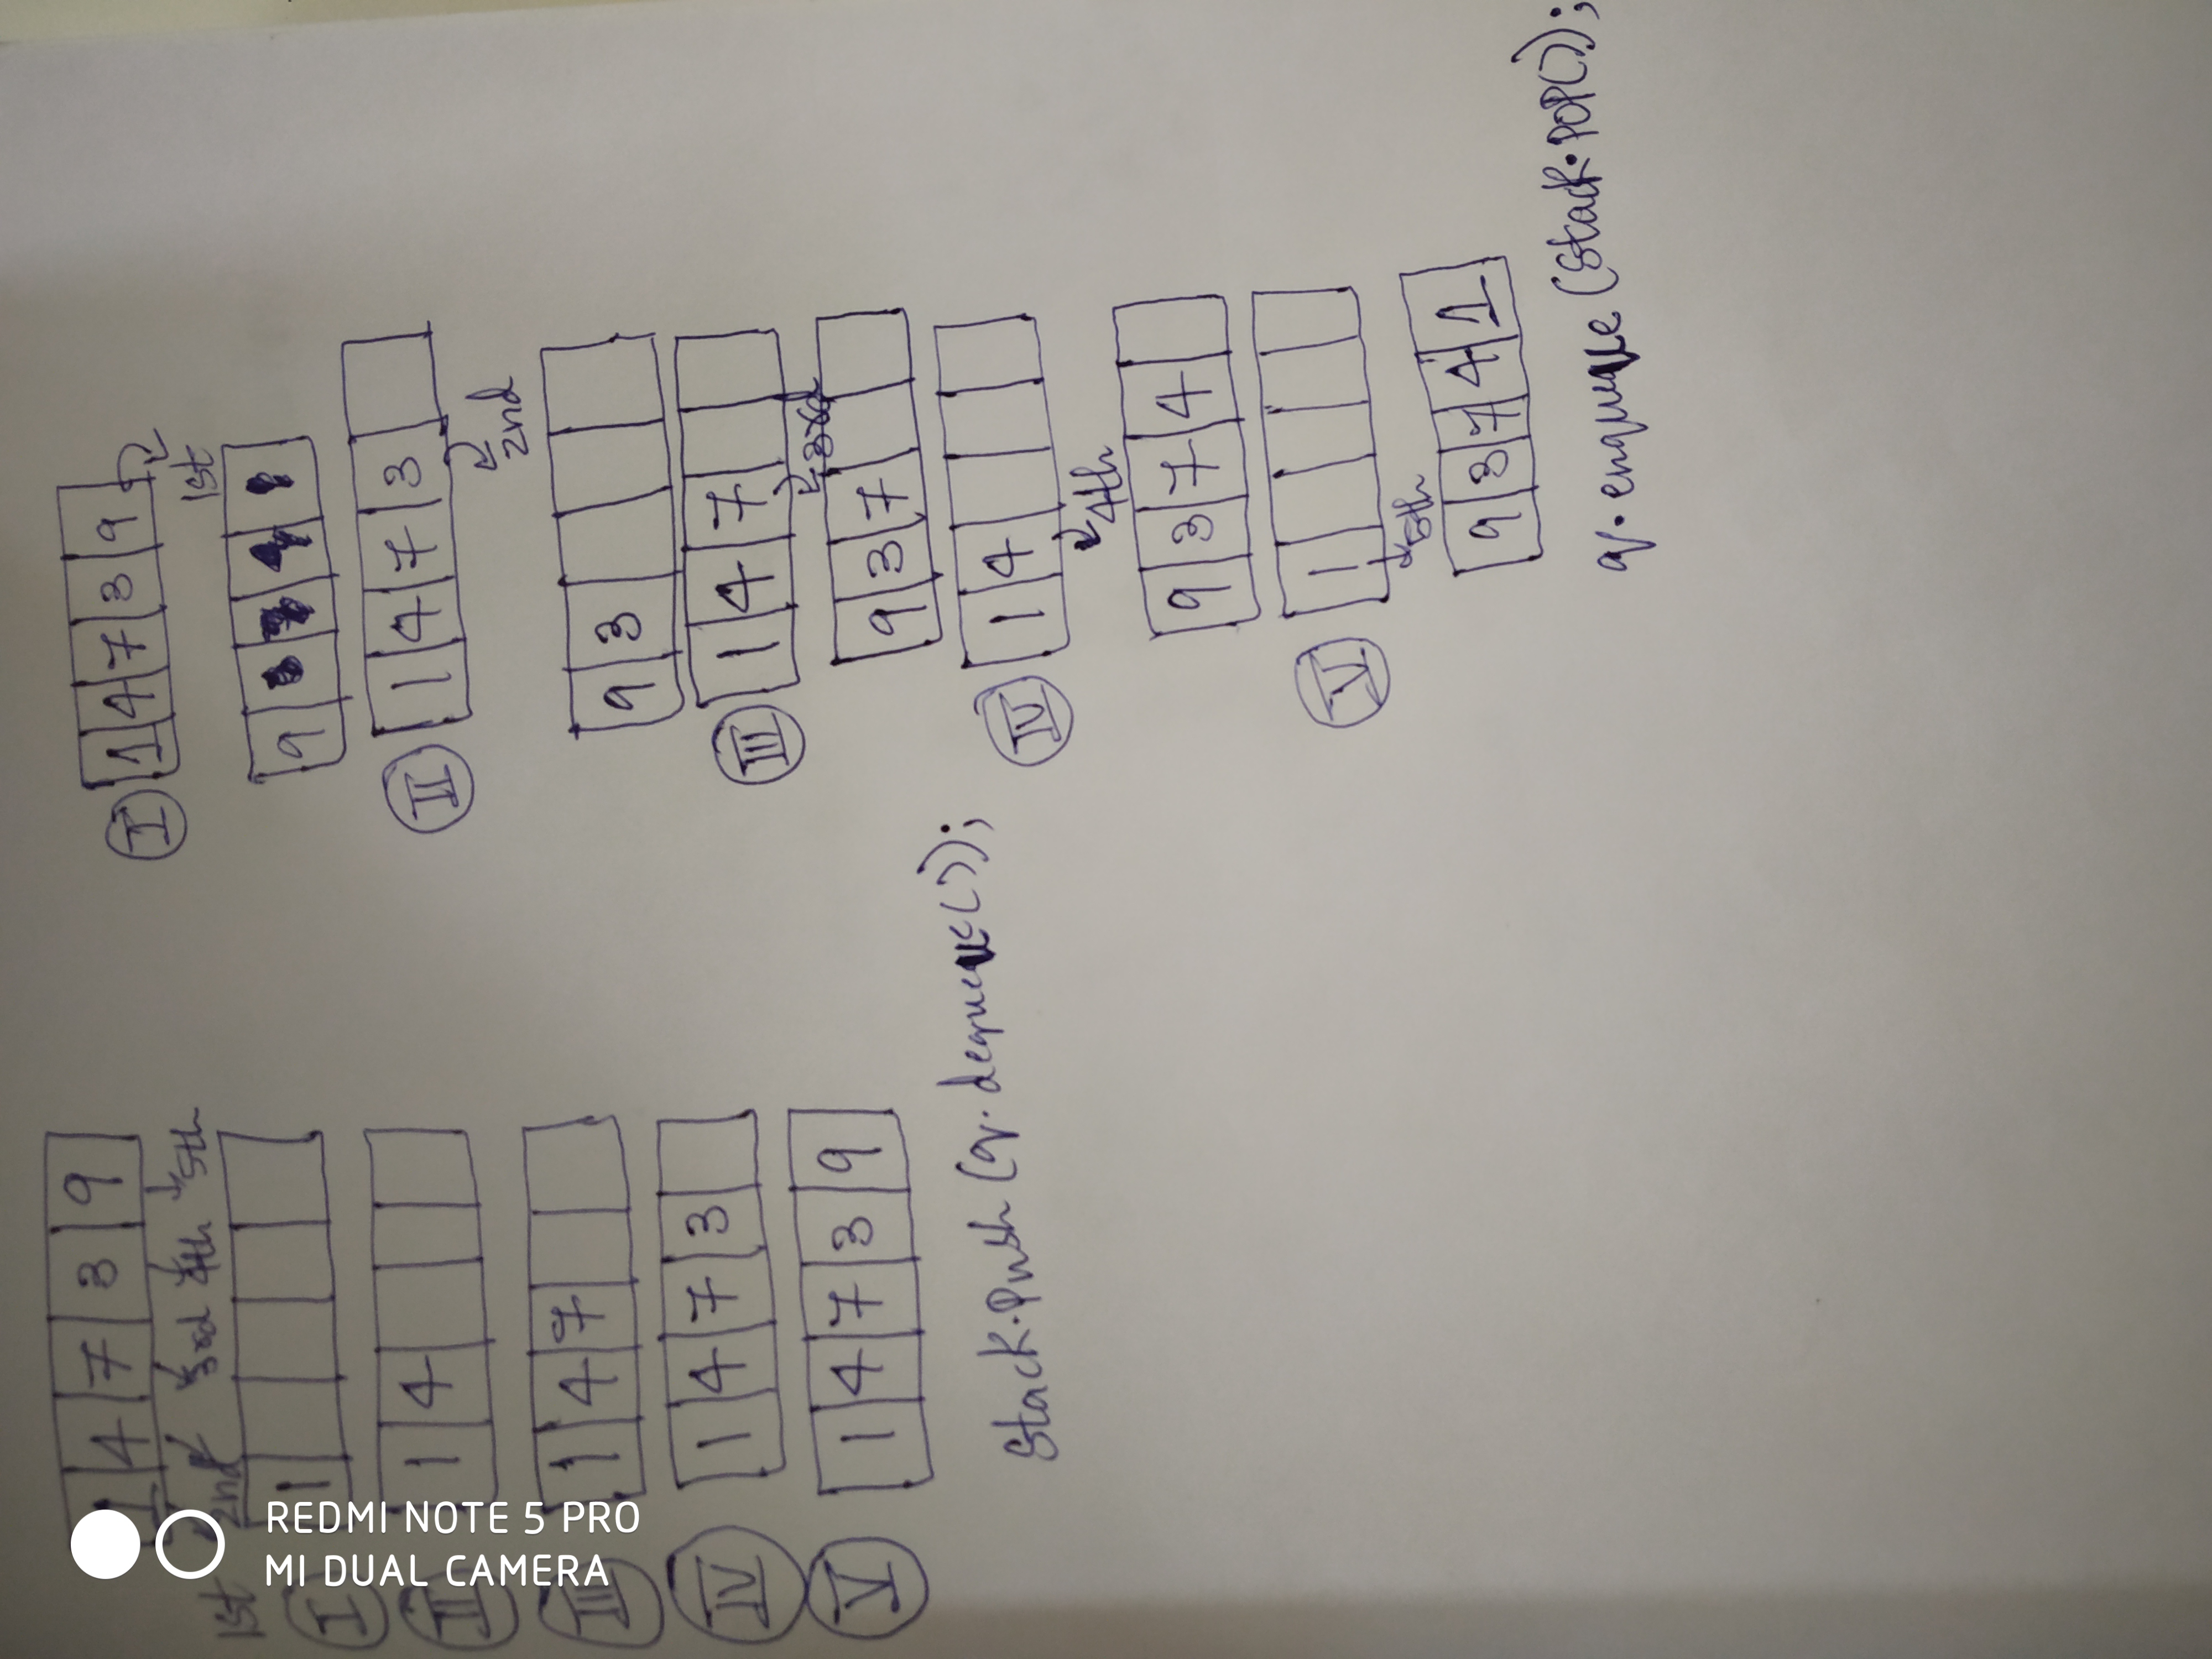 1 4 7 3 9
1st 2nd 3rd 4th 5th
I 1
II 1 4
III 1 4 7
IV 1 4 7 3
V 1 4 7 3 9
Stack.Push(q.dequeue());
I 1 4 7 3 9
1st
9
II 1 4 7 3
2nd
9 3
III 1 4 7
3rd
9 3 7
IV 1 4
4th
9 3 7 4
V 1
5th
9 3 7 4 1
q.enqueue(Stack.POP());
REDMI NOTE 5 PRO
MI DUAL CAMERA